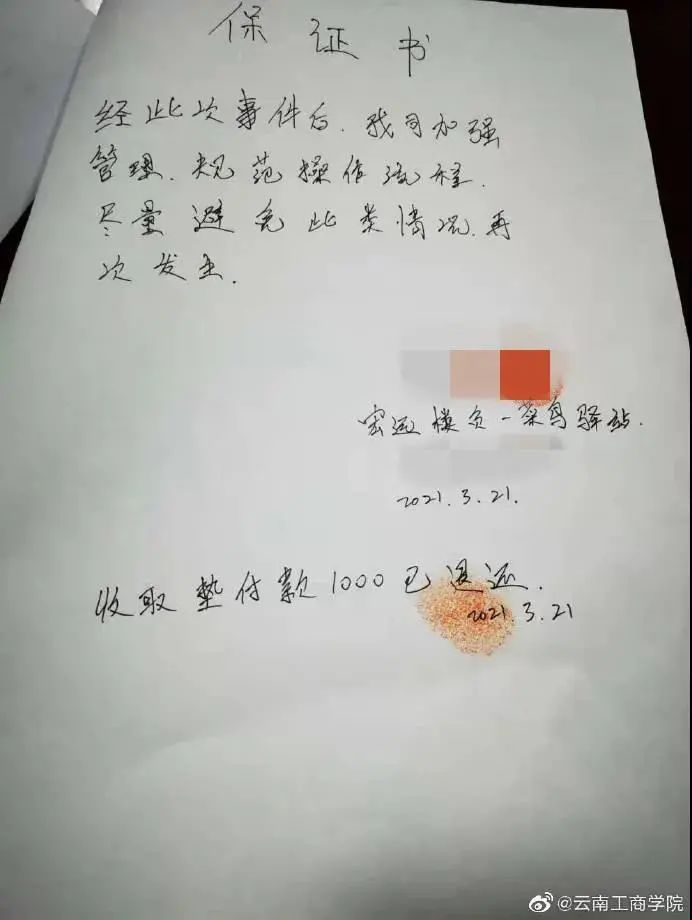 保证书
经此次事件后，我司加强
管理、规范操作流程，
尽量避免此类情况再
次发生.
宏远楼负一菜鸟驿站.
2021.3.21.
收取垫付款1000已退还.
2021.3.21
@云南工商学院